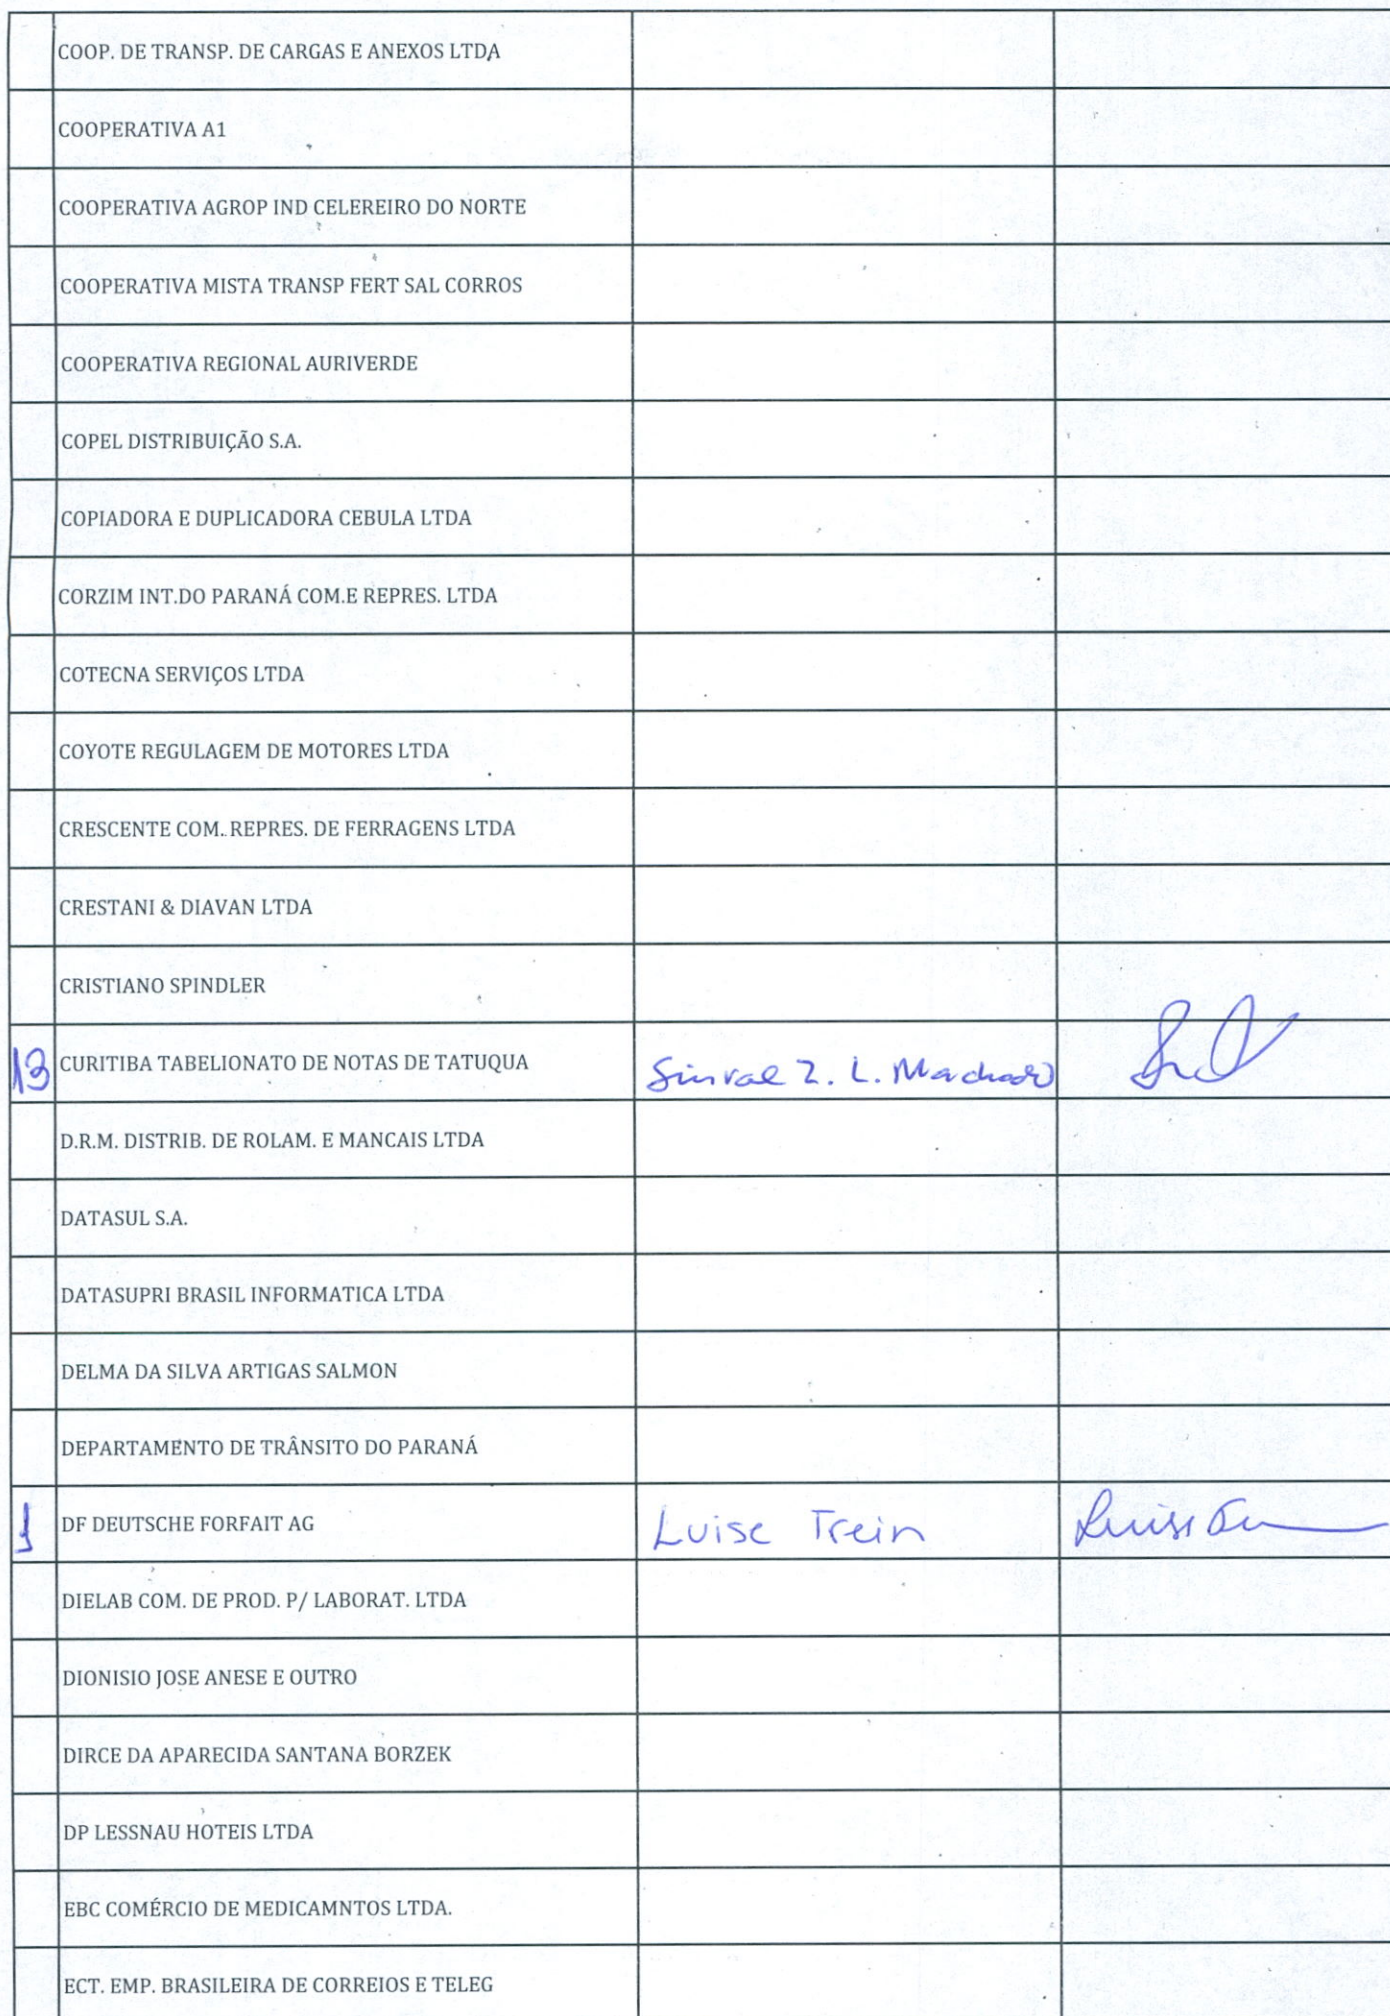 COOP. DE TRANSP. DE CARGAS E ANEXOS LTDA
COOPERATIVA A1
COOPERATIVA AGROP IND CELEREIRO DO NORTE
COOPERATIVA MISTA TRANSP FERT SAL CORROS
COOPERATIVA REGIONAL AURIVERDE
COPEL DISTRIBUIÇÃO S.A.
COPIADORA E DUPLICADORA CEBULA LTDA
CORZIM INT.DO PARANÁ COM.E REPRES. LTDA
COTECNA SERVIÇOS LTDA
COYOTE REGULAGEM DE MOTORES LTDA
CRESCENTE COM. REPRES. DE FERRAGENS LTDA
CRESTANI & DIAVAN LTDA
CRISTIANO SPINDLER
13 CURITIBA TABELIONATO DE NOTAS DE TATUQUA Sinval Z. L. Machado
D.R.M. DISTRIB. DE ROLAM. E MANCAIS LTDA
DATASUL S.A.
DATASUPRI BRASIL INFORMATICA LTDA
DELMA DA SILVA ARTIGAS SALMON
DEPARTAMENTO DE TRÂNSITO DO PARANÁ
1 DF DEUTSCHE FORFAIT AG Luise Trein
DIELAB COM. DE PROD. P/ LABORAT. LTDA
DIONISIO JOSE ANESE E OUTRO
DIRCE DA APARECIDA SANTANA BORZEK
DP LESSNAU HOTEIS LTDA
EBC COMÉRCIO DE MEDICAMNTOS LTDA.
ECT. EMP. BRASILEIRA DE CORREIOS E TELEG